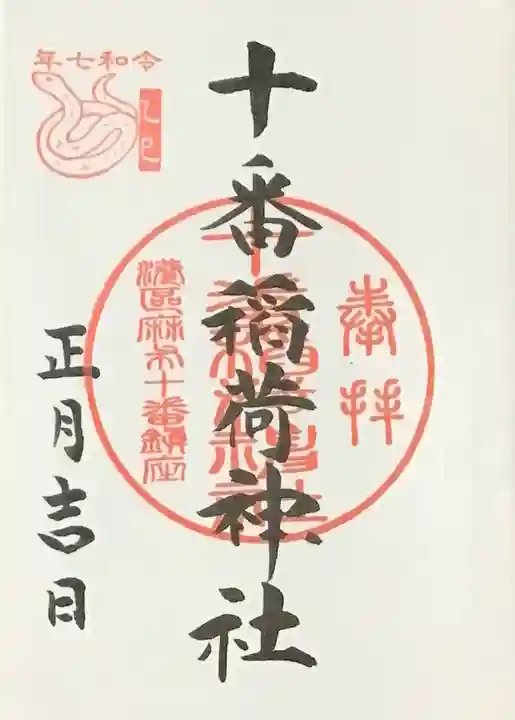 奉拝
十番稲荷神社
十番稲荷神社
港区麻布十番鎮座
正月吉日
令和七年
乙巳